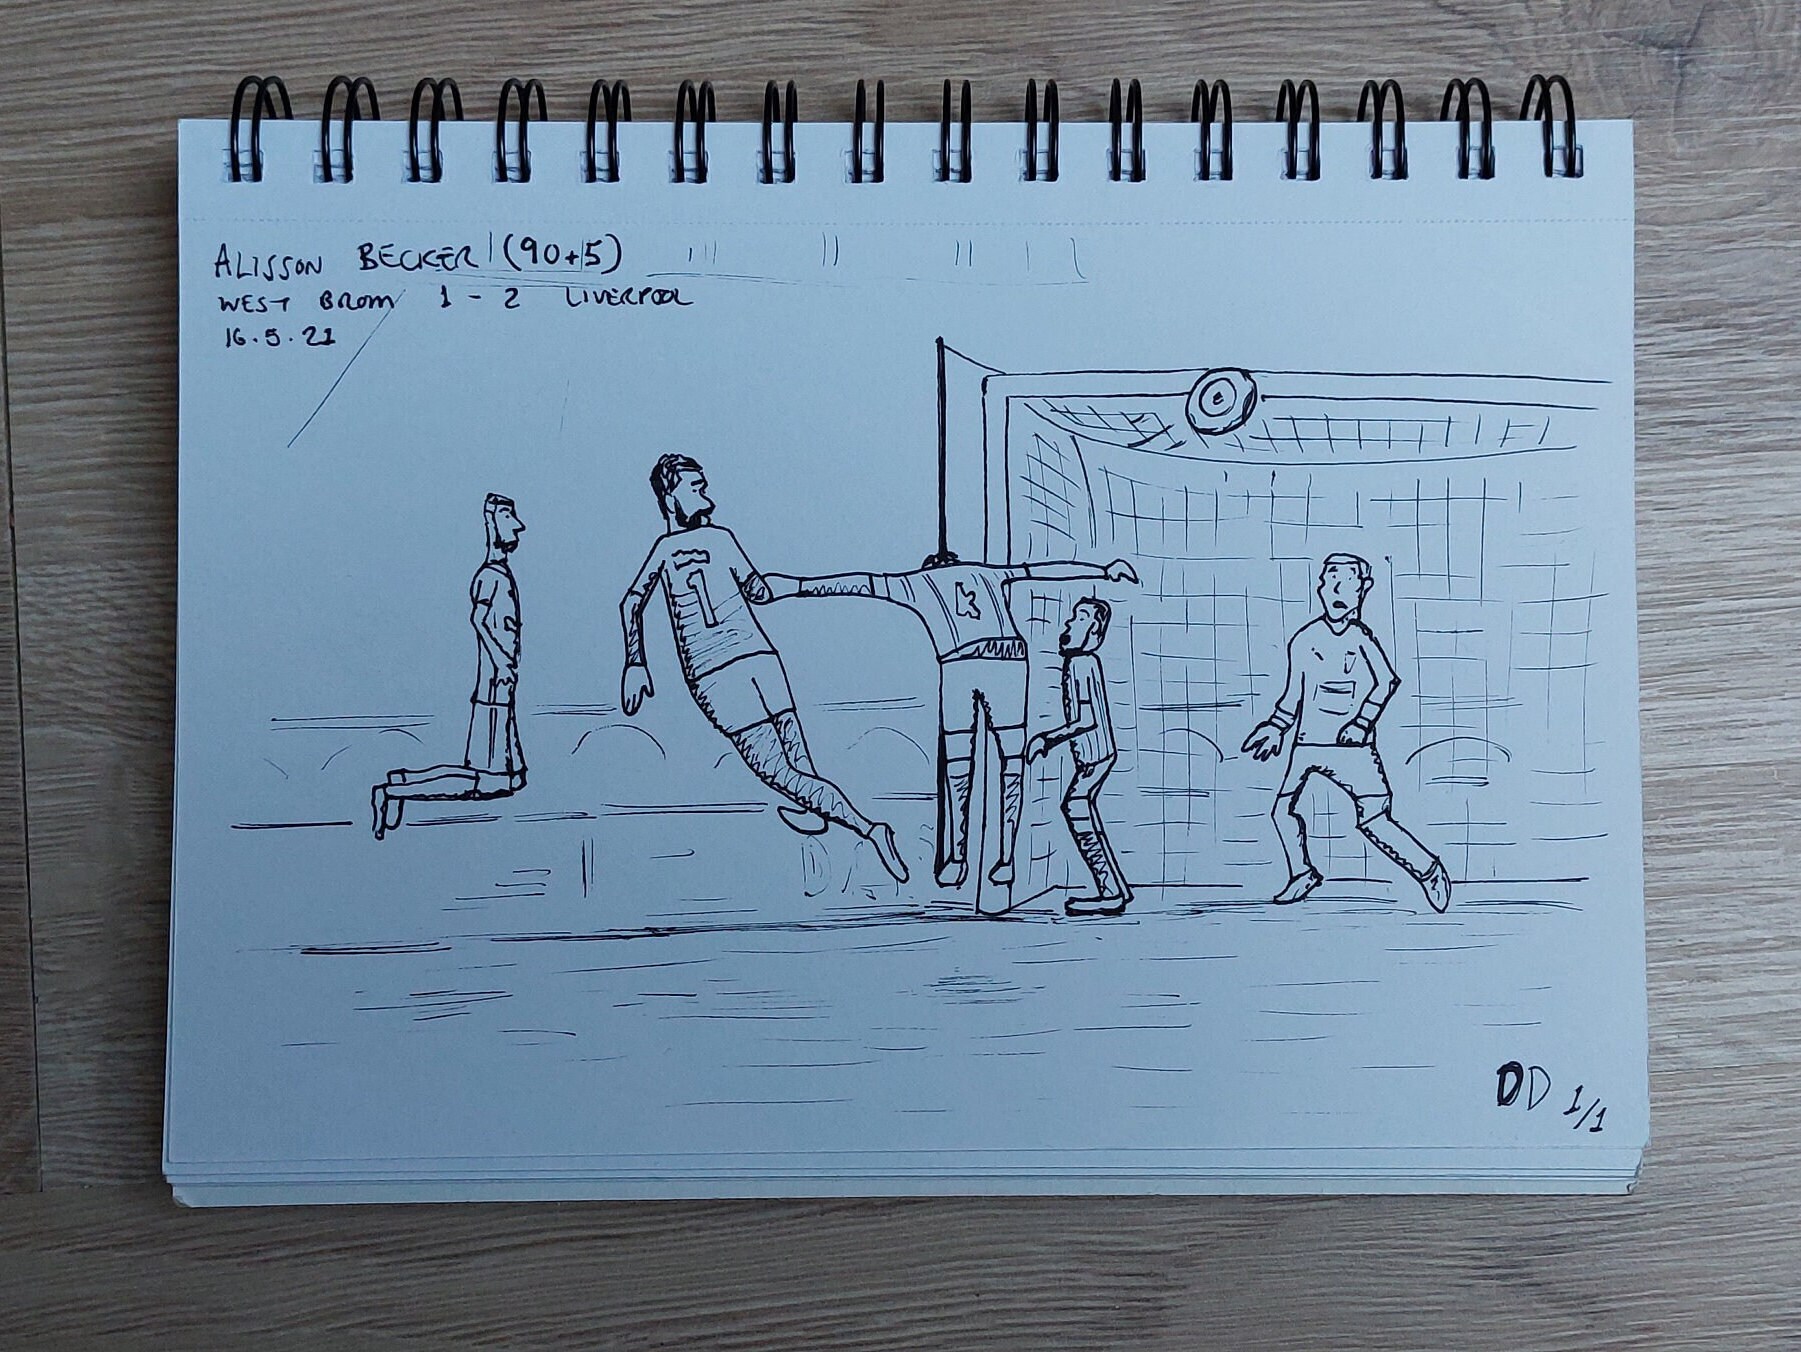 ALISSON BECKER (90+5)
WEST BROM 1-2 LIVERPOOL
16.5.21
1
4
DD 1/1